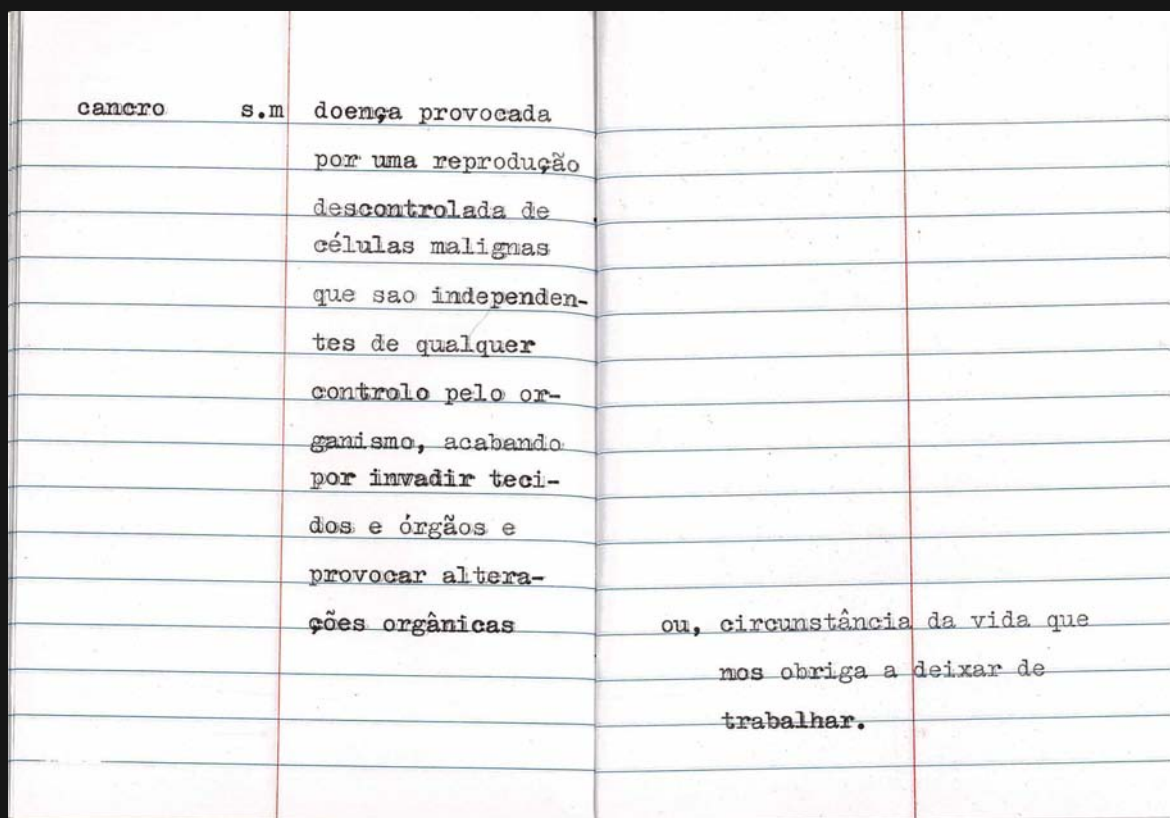 cancro s.m doença provocada
por uma reprodução
descontrolada de
células malignas
que sao independen-
tes de qualquer
controlo pelo or-
ganismo, acabando
por invadir teci-
dos e órgãos e
provocar altera-
ções orgânicas
ou, circunstância da vida que
nos obriga a deixar de
trabalhar.